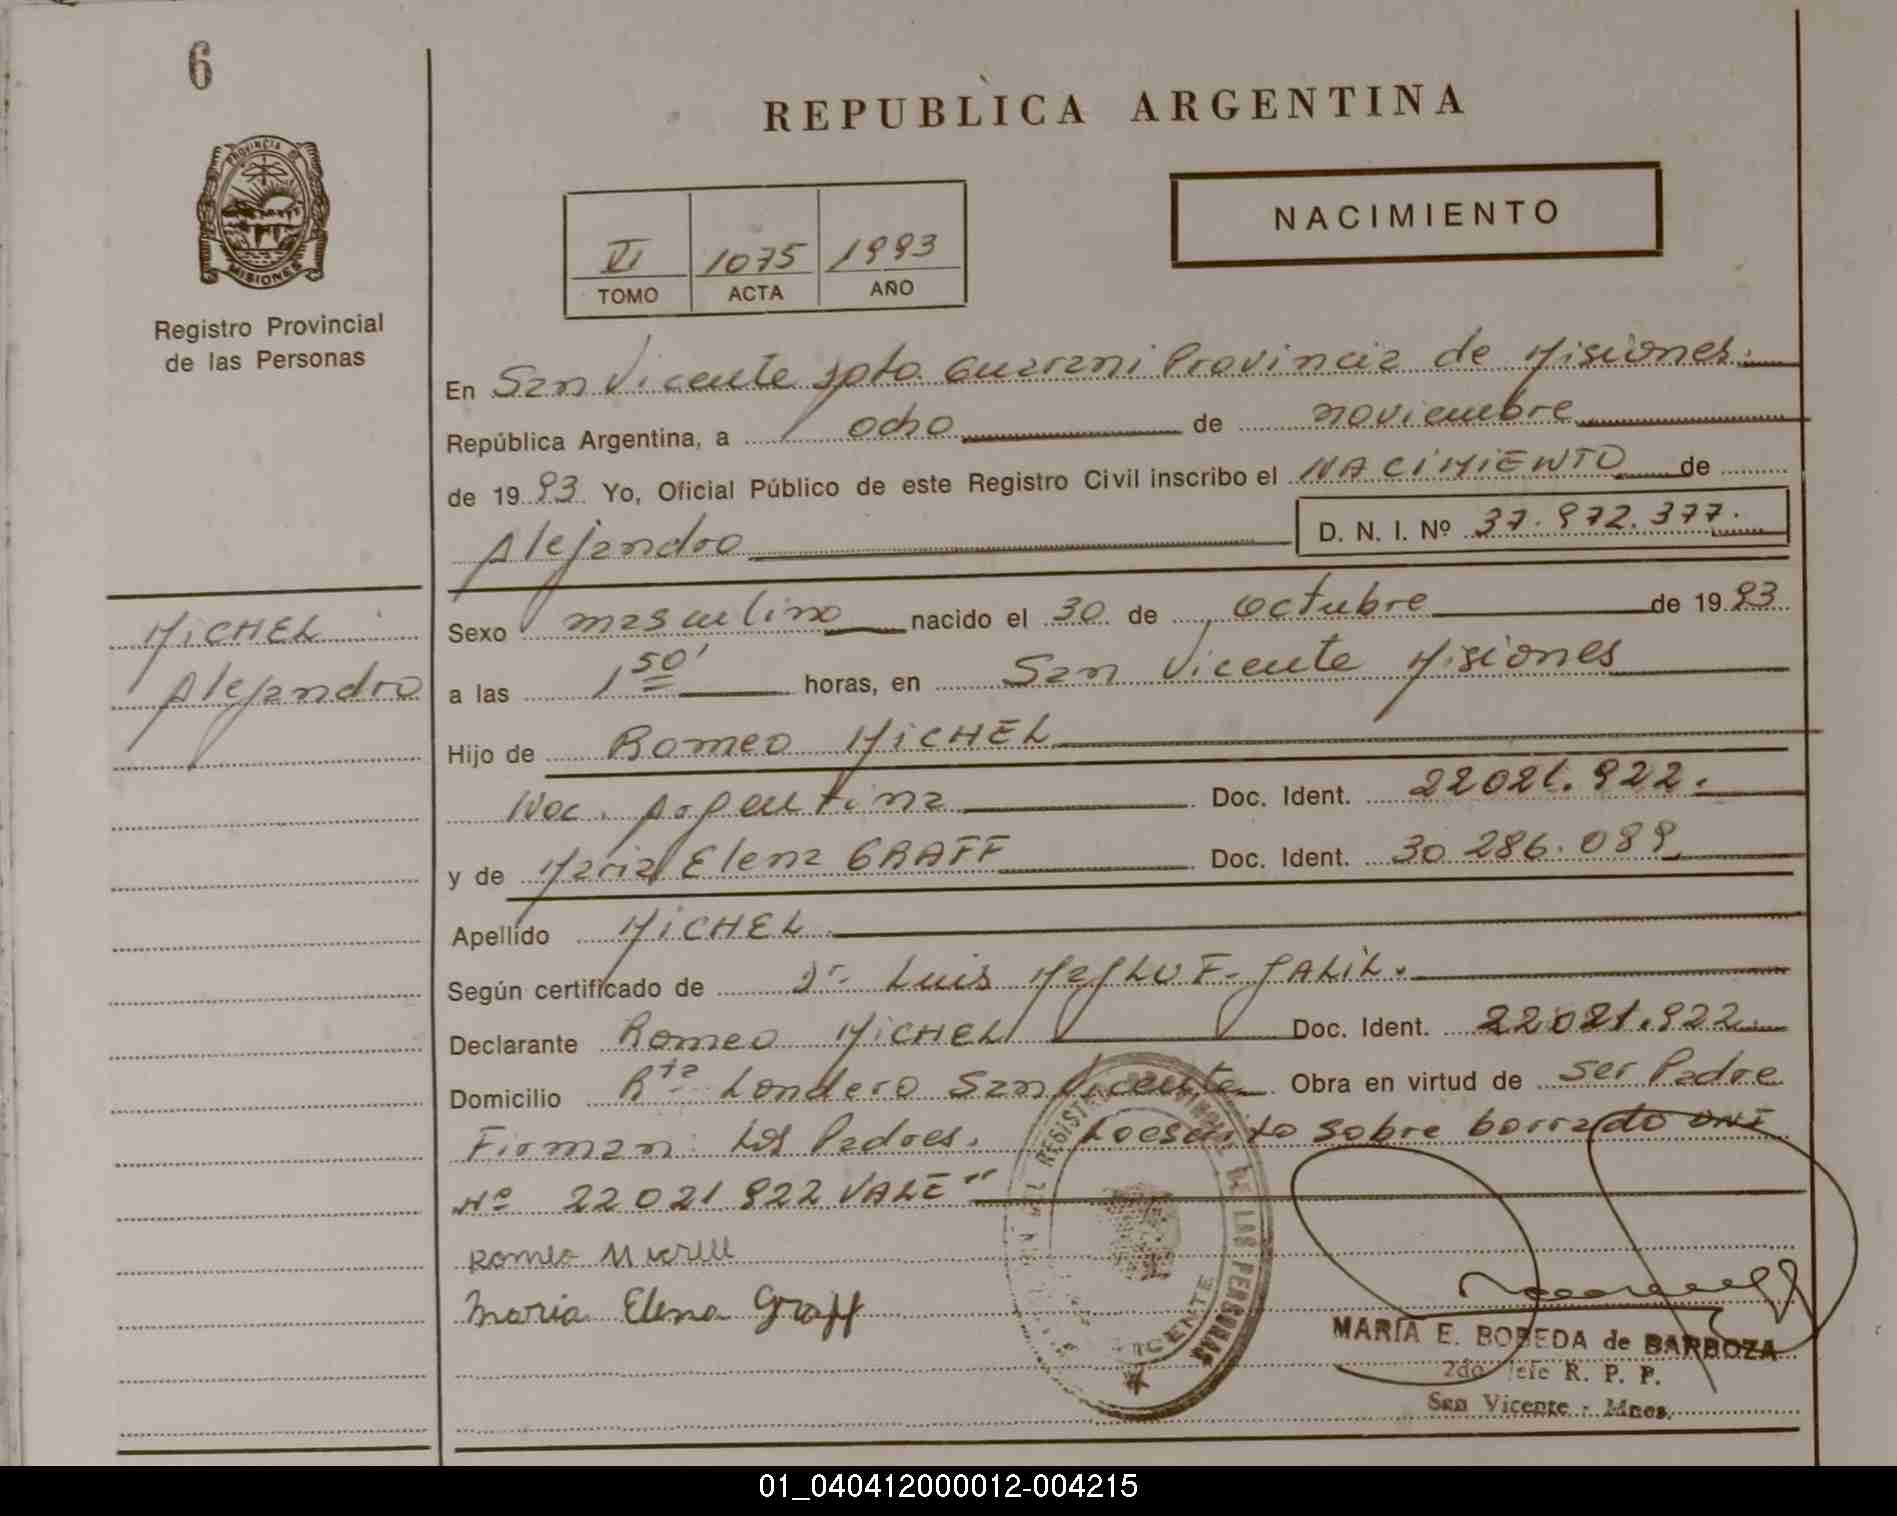 6
PROVINCIA DE
MISIONES
Registro Provincial
de las Personas
REPUBLICA ARGENTINA
NACIMIENTO
VI 1075 1993
TOMO ACTA AÑO
En San Vicente Dpto. Guarani Provincia de Misiones.
República Argentina, a ocho de noviembre
de 1993 Yo, Oficial Público de este Registro Civil inscribo el NACIMIENTO de
Alejandro D. N. I. Nº 37.972.377.
MICHEL
Alejandro
Sexo masculino nacido el 30 de octubre de 1993
a las 1 50' horas, en San Vicente Misiones
Hijo de Romeo MICHEL
Nac. Argentina Doc. Ident. 22021.922.
y de Maria Elena GRAFF Doc. Ident. 30 286.089
Apellido MICHEL
Según certificado de Dr. Luis GALIL.
Declarante Romeo MICHEL Doc. Ident. 22021.922
Domicilio Rta Londero San Vicente Obra en virtud de ser Padre
Firman: los Padres. Loescrito sobre borrado DNI
Nº 22021922 VALE"
Romeo
Maria Elena Graff
REGISTRO PROVINCIAL DE LAS PERSONAS
VICENTE
MARIA E. BOBEDA de BARBOZA
2do Jefe R. P. P.
San Vicente - Mnes.
01_040412000012-004215